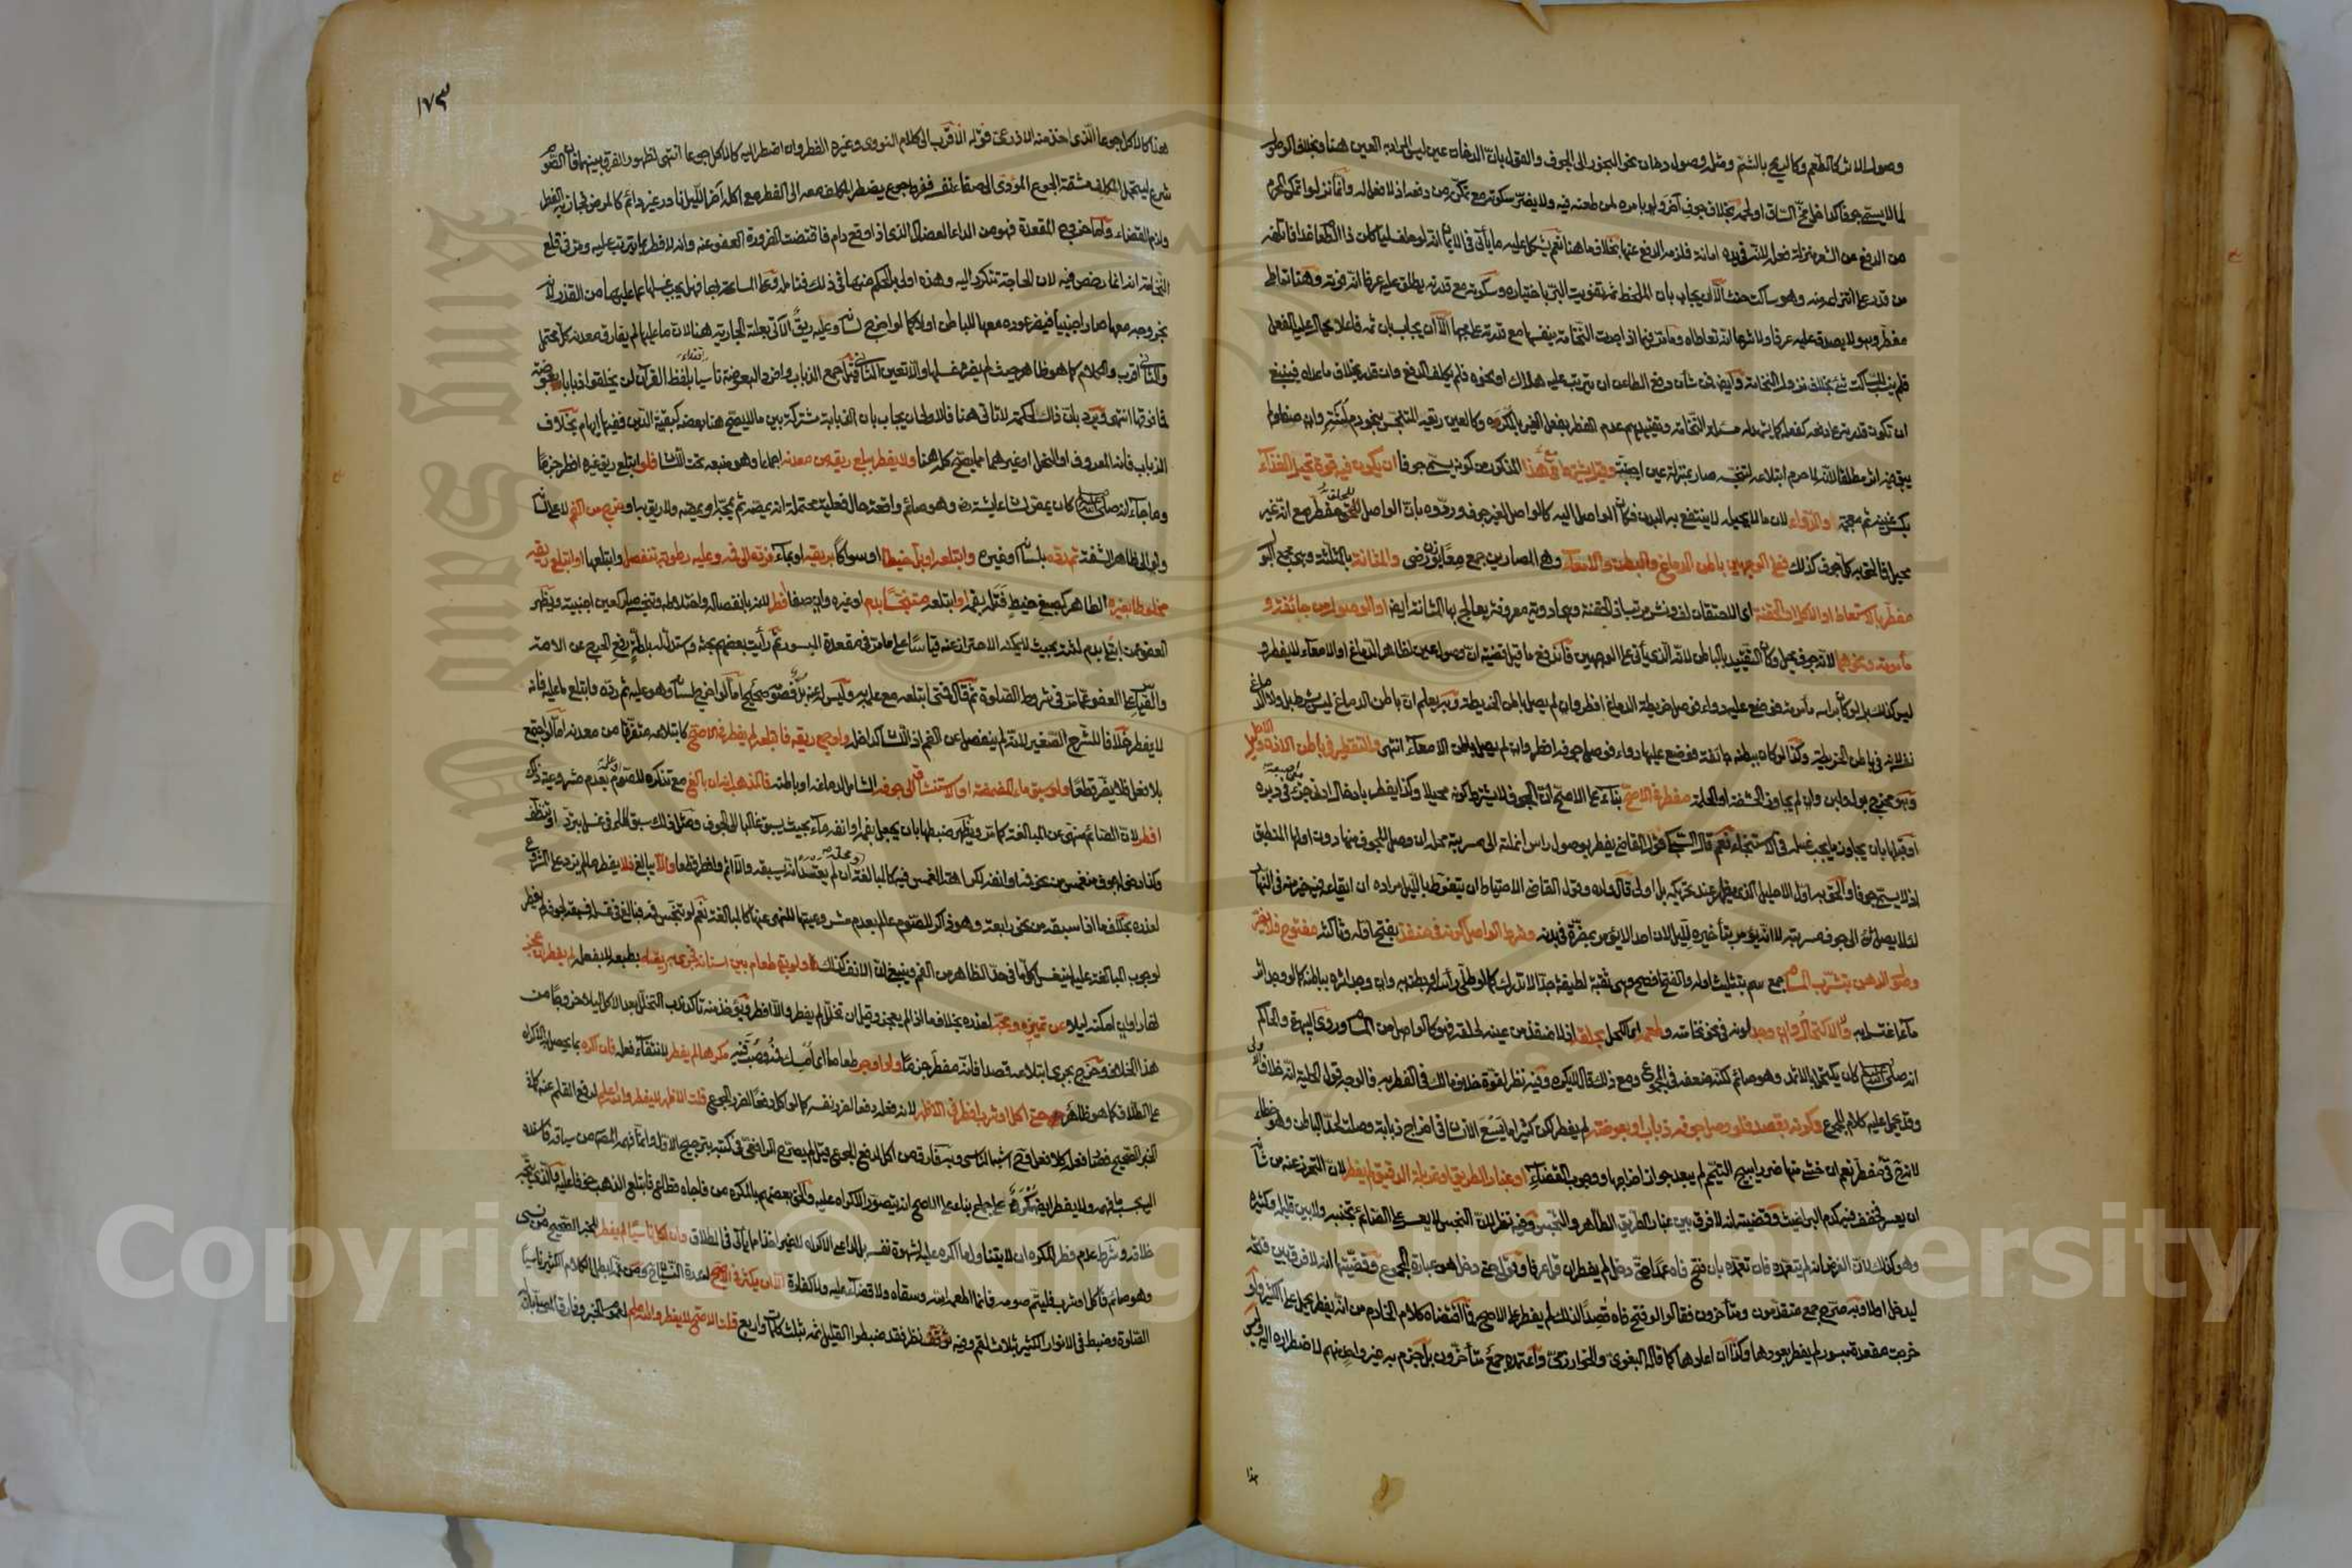 وصول الاثر كالطعم وكالريح بالشم ومثله وصول دخان نحو البخور الى الجوف والقول بان الدخان عين ليس المراد به العين هنا وبخلاف الوصول
لما لا يسمى جوفا كداخل مخ الساق او لحمه بخلاف جوف آخر ولو بامره لمن طعنه فيه ولا يضر سكوته مع تمكنه من دفعه اذ لا فعل له وانما نزلوا تمكن المحرم
من الدفع عن الشعر منزلة فعله لانه في يده امانة فلزمه الدفع عنها بخلاف ما هنا نعم يشكل عليه ما يأتي في الايمان انه لو حلف لياكلن ذا الطعام غدا فاتلفه
من قدر على انتزاعه منه وهو ساكت حنث الا ان يجاب بان الملحظ ثم تفويت البر باختياره وسكوته مع قدرته يطلق عليه عرفا انه فوته وهنا تعاطي
مفطر وهو لا يصدق عليه عرفا ولا شرعا انه تعاطاه وما مر فيما اذا جرت النخامة بنفسها مع قدرته على مجها الا ان يجاب بان ثم فاعلا يحال عليه الفعل
فلم ينسب للساكت شيء بخلاف نزول النخامة وايضا فمن شأن دفع الطاعن ان يترتب عليه هلاك او نحوه فلم يكلف الدفع وان قدر بخلاف ما عداه فينبغي
ان تكون قدرته على دفعه كفعله كما يشهد له مسئلة النخامة وتقييدهم عدم الفطر بفعل الغير بالمكره وكالعين ريقه المتنجس بنحو دم لثته وان صفا ولم
يبق فيه اثر مطلقا لانه لما حرم ابتلاعه لتنجسه صار بمنزلة عين اجنبية وقيل يشترط مع هذا المذكور من كونه يسمى جوفا ان يكون فيه قوة تحيل الغذاء
بكسر غينه ثم معجمة والدواء لان ما لا يحيله لا ينتفع به البدن فكان الواصل اليه كالواصل لغير جوف وردوه بان الواصل للحلق مفطر مع انه غير
محيل فالحق به كل جوف كذلك فعلى الوجهين باطن الدماغ والبطن والامعاء وهي المصارين جمع معا بوزن رضى والمثانة بالمثلثة وهي مجمع البول
مفطر بالاستعاط او الاكل او الحقنة اي الاحتقان لف ونشر مرتب اذ الحقنة وهي ادوية معروفة يعالج بها المثانة ايضا او الوصول من جائفة و
مأمومة ونحوهما لانه جوف محيل وكأن التقييد بالباطن لانه الذي يأتي على الوجهين فاندفع ما قيل قضيته ان وصول عين لظاهر الدماغ او الامعاء لا يفطر و
ليس كذلك بل لو كان براسه مأمومة فوضع عليه دواء فوصل خريطة الدماغ افطر وان لم يصل باطن الخريطة وبه يعلم ان باطن الدماغ ليس بشرط بل ولا الدماغ
نفسه لانه في باطن الخريطة وكذا لو كان ببطنه جائفة فوضع عليها دواء فوصل جوفه افطر وان لم يصل باطن الامعاء انتهى والتقطير في باطن الاذن والاحليل
وهو مخرج بول ولبن وان لم يجاوز الحشفة او الحلمة مفطر في الاصح بناء على الاصح ان الجوف لا يشترط كونه محيلا وكذا يفطر بادخال ادنى جزء من اصبعه في دبره
او قبلها بان يجاوز ما يجب غسله في الاستنجاء نعم قال السبكي قول القاضي يفطر بوصول راس انملته الى مسربته محله ان وصل للمجوف منها دون اولها المنطبق
اذ لا يسمى جوفا والحق به اول الاحليل الذي يظهر عند تحريكه بل اولى قال ولده وقول القاضي الاحتياط ان يتغوط بالليل مراده ان ايقاعه فيه خير منه في النهار
لئلا يصل شيء الى جوف مسربته لا انه يؤمر بتأخيره لليل لان احدا لا يؤمر بمضرة في بدنه وشرط الواصل كونه في منفذ بفتح اوله وثالثه مفتوح فلا يضر
وصول الدهن بتشرب المسام جمع سم بتثليث اوله والفتح افصح وهي ثقبة لطيفة جدا لا تدرك كما لو طلى رأسه او بطنه به وان وجد اثره بباطنه كما لو وجد اثر
ما اغتسل به ولا الاكتحال وان وجد لونه في نحو نخامته وطعمه اي الكحل بحلقه اذ لا منفذ من عينه لحلقه فهو كالواصل من المسام وروى البيهقي والحاكم
انه صلى الله عليه وسلم كان يكتحل بالاثمد وهو صائم لكنه ضعفه في المجموع ومع ذلك قال لا يكره وفيه نظر لقوة خلاف مالك في الفطر به فالوجه قول الحلية انه خلاف الاولى
وقد يحمل عليه كلام المجموع وكونه بقصد فلو وصل جوفه ذباب او بعوضة لم يفطر لكن كثيرا ما يسعى الانسان في اخراج ذبابة وصلت لحد الباطن وهو خطاء
لانه قيء مفطر نعم ان خشي منها ضررا يبيح التيمم لم يبعد جواز اخراجها ووجوب القضاء او غبار الطريق او غربلة الدقيق لم يفطر لان التحرز عنه من شأنه
ان يعسر فخفف فيه كدم البراغيث وقضيته انه لا فرق بين غبار الطريق الطاهر والنجس وفيه نظر لان النجس لا يعسر على الصائم تجنبه ولا بين قليله وكثيره
وهو كذلك لان الفرض انه لم يتعمده فان تعمده بان فتح فاه عمدا حتى دخل لم يفطر ان قل عرفا وقولي حتى دخل هو عبارة المجموع وقضيتها انه لا فرق بين فتحه
ليدخل او لا وبه صرح جمع متقدمون ومتأخرون فقالوا لو فتح فاه قصدا لذلك لم يفطر على الاصح فما اقتضاه كلام الخادم من انه يفطر يحمل على الكثير ولو
خرجت مقعدة مبسور لم يفطر بعودها وكذا ان اعادها كما قاله البغوي والخوارزمي واعتمده جمع متأخرون بل جزم به غير واحد منهم لاضطراره اليه وليس
هذا
١٧٣
هذا كالاكل جوعا الذي اخذ منه الاذرعي قوله الاقرب الى كلام النووي وغيره الفطر وان اضطر اليه كالاكل جوعا انتهى لظهور الفرق بينهما فان الصوم
شرع ليتحمل المكلف مشقة الجوع المؤدي الى صفاء نفسه ففرط جوع يضطر المكلف معه الى الفطر مع اكله آخر الليل نادر غير دائم كالمرض فجاز به الفطر
ولزم القضاء واما خروج المقعدة فهو من الداء العضال الذي اذا وقع دام فاقتضت الضرورة العفو عنه وانه لا فطر بما يترتب عليه ومر في قلع
النخامة انه انما رخص فيه لان الحاجة تتكرر اليه وهذه اولى بالحكم منها في ذلك فتأمله وعلى المسامحة بها فهل يجب غسلها عما عليها من القذر لانه
بخروجه معها صار اجنبيا فيضر عوده معها للباطن اولا كما لو اخرج لسانه وعليه ريق الآتي بعلته الجارية هنا لان ما عليها لم يفارق معدنه كل محتمل
والثاني اقرب والكلام كما هو ظاهر حيث لم يضره غسلها والا تعين الثاني قيل جمع الذباب وافرد البعوضة تأسيا بلفظ القرآن لن يخلقوا ذبابا بعوضة
فما فوقها انتهى ويرد بان ذلك لحكمة لا تأتي هنا فالاولى ان يجاب بان
الذباب فانه المعروف او النحل او غيرهما مما يصح كله هنا ولا يفطر ببلع ريقه من معدنه اجماعا وهو منبعه تحت اللسان فلو ابتلع ريق غيره افطر جزما
وما جاء انه صلى الله عليه وسلم كان يمص لسان عائشة رضي وهو صائم واقعة حال فعلية محتملة انه يمصه ثم يمجه او يمصه ولا ريق به او خرج من الفم لا على اللسان
ولو الى ظاهر الشفة ثم رده بلسانه او غيره وابتلعه او بل خيطا او سواكا بريقه او بماء فرده الى فمه وعليه رطوبة تنفصل وابتلعها او ابتلع ريقه
مخلوطا بغيره الطاهر كصبغ خيط فتله بفمه او ابتلعه متنجسا بدم او غيره وان صفا افطر لانه بانفصاله واختلاطه وتنجسه صار كعين اجنبية ويظهر
العفو عمن ابتلي بدم لثته بحيث لا يمكنه الاحتراز عنه قياسا على ما مر في مقعدة المبسور ثم رأيت بعضهم بحثه واستدل له بادلة رفع الحرج عن الامة
والقياس على العفو عما مر في شروط الصلوة ثم قال فمتى ابتلعه مع علمه به وليس له عنه بد فصومه صحيح اما لو اخرج لسانه وهو عليه ثم رده وابتلع ما عليه فانه
لا يفطر خلافا للشرح الصغير لانه لم ينفصل عن الفم اذ اللسان كداخله ولو جمع ريقه فابتلعه لم يفطر في الاصح كابتلاعه متفرقا من معدنه اما لو اجتمع
بلا فعل فلا يضر قطعا ولو سبق ماء المضمضة او الاستنشاق الى جوفه الشامل لدماغه او باطنه فالمذهب انه ان بالغ مع تذكره للصوم وعلمه بعدم مشروعية ذلك
افطر لان الصائم منهي عن المبالغة كما مر ويظهر ضبطها بان يجعل بفمه او انفه ماء بحيث يسبق غالبا الى الجوف ومثل ذلك سبق الماء في غسل تبرد او تنظف
وكذا دخول جوف منغمس من نحو فمه او انفه لكراهة الغمس فيه كالمبالغة ومحله ان لم يعتد انه يسبقه والا اثم وافطر قطعا والا يبالغ فلا يفطر ما لم يزد على المشروع
لعذره بخلاف ما اذا سبقه من نحو رابعة وهو ذاكر للصوم عالم بعدم مشروعيتها للنهي عنها كالمبالغة نعم لو تنجس فمه فبالغ في غسله فسبقه لجوفه لم يفطر
لوجوب المبالغة عليه لينغسل كل ما في حد الظاهر من الفم وينبغي ان الانف كذلك ولو بقي طعام بين اسنانه فجرى به ريقه بطبعه لا بفعله لم يفطر ان عجز
نهارا وان امكنه ليلا عن تمييزه ومجه لعذره بخلاف ما اذا لم يعجز وقيل ان تخلل لم يفطر والا افطر ويؤخذ منه تأكد ندب التخلل بعد الاكل ليلا خروجا من
هذا الخلاف وخرج بجرى ابتلاعه قصدا فانه مفطر جزما ولو اوجر طعاما اي امسك فمه وصب فيه مكرها لم يفطر لانتفاء فعله فان اكره بما يحصل به الاكراه
على الطلاق كما هو ظاهر حتى اكل او شرب افطر في الاظهر لانه فعله دفعا لضرر نفسه كما لو اكل دفعا لضرر الجوع قلت الاظهر لا يفطر والله اعلم لرفع القلم عنه كما في
الخبر الصحيح فصار فعله كلا فعل وبه فارق من اكل لدفع الجوع قيل لم يصرح الرافعي في كتبه بترجيح الاول وانما فهمه المصنف من سياقه فاسنده
اليه بحسب ما فهمه ولا يفطر ايضا مكره على جماع بناء على الاصح انه يتصور الاكراه عليه والحق بعضهم بالمكره من فاجاه قطاع فابتلع الذهب خوفا عليه والذي يتجه
خلافه وشرط عدم فطر المكره ان لا يتناول ما اكره عليه لشهوة نفسه بل لداعي الاكراه لا غير اخذا مما يأتي في الطلاق وان اكل ناسيا لم يفطر للخبر الصحيح من نسي
وهو صائم فاكل او شرب فليتم صومه فانما اطعمه الله وسقاه ولا قضاء عليه ولا كفارة الا ان يكثر في الاصح لندرة النسيان ح ومن ثم ابطل الكلام الكثير ناسيا
الصلوة وضبط في الانوار الكثير بثلاث لقم وفيه نظر فقد ضبطوا القليل ثم بثلاث كلمات واربع قلت الاصح لا يفطر والله اعلم لعموم الخبر وفارق المصلي بان